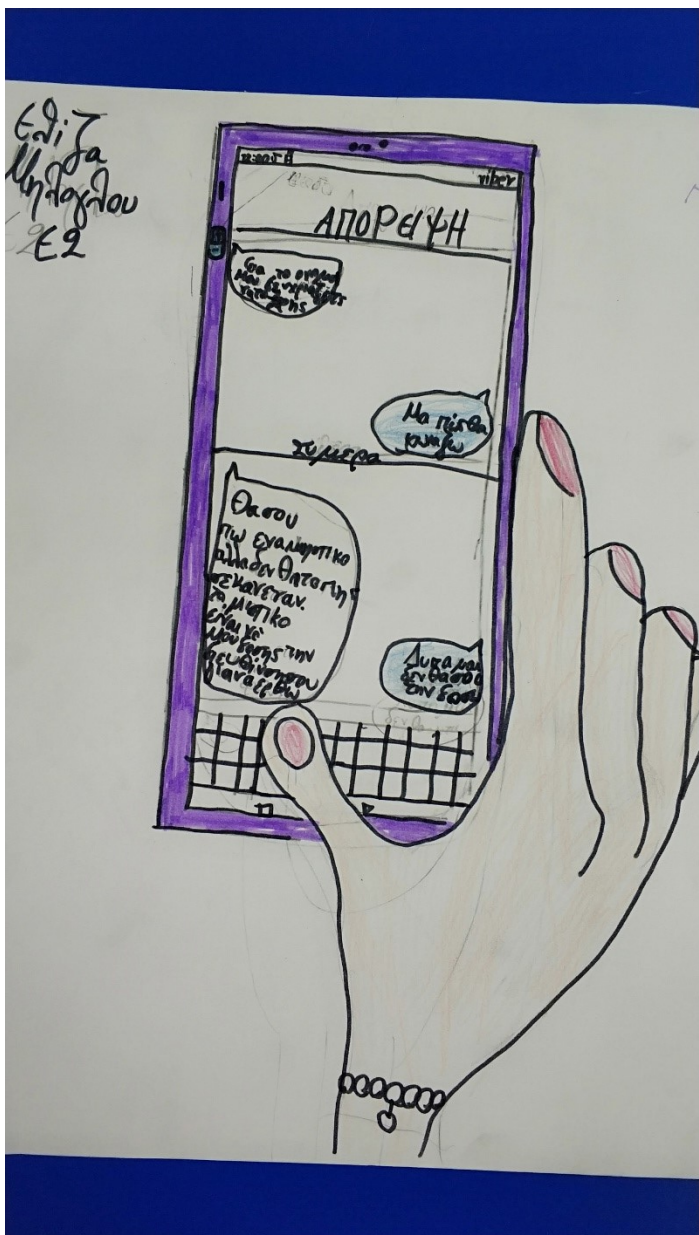 Ελίζα
Μηλογλου
Ε2
viber
ΑΠΟΡΕΙΨΗ
Για το
μου
Μα πως θα
Συμερα
Θα σου
πω ενα μιστικο
αλλα δεν θα το πης
σε κανεναν.
το μιστικο
είναι
μου δοσης την
διευθινση σου
για να ερθω
Δυκα μου
δεν θα σου
την δοσω